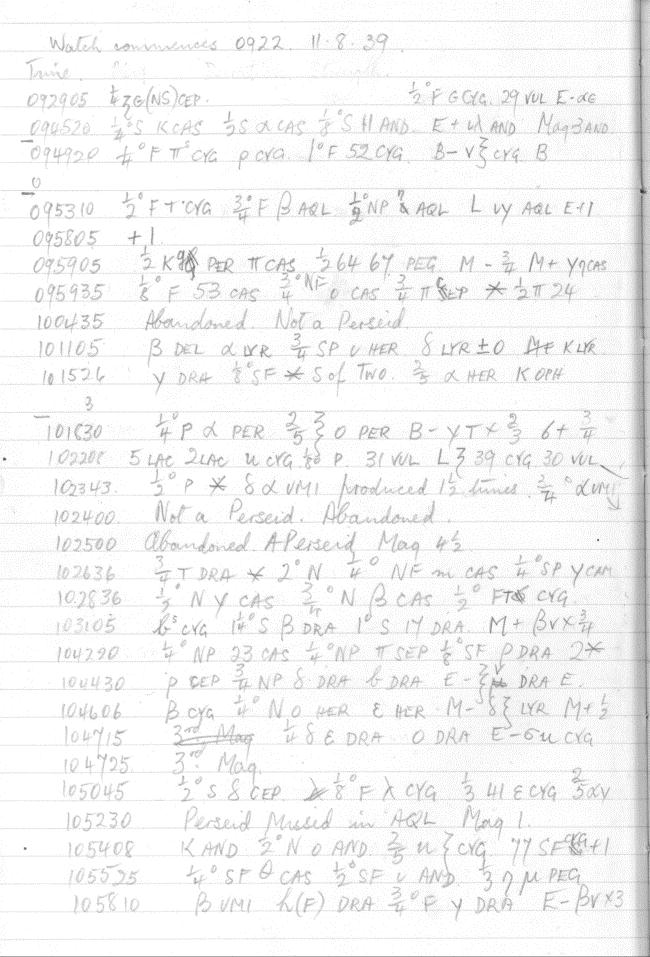 Watch commences 0922. 11.8.39.
Time.
092905 ¼ ξ G(NS) CEP. ½° F G CYG. 29 VUL E-
094520 ¼° S K CAS ½ S α CAS ⅛° S H AND. E + AND Mag 3 AND
094920 ¼° F π' CYG ρ CYG. 1° F 52 CYG. B - V } CYG B
0
095310 ½° F T CYG ¾° F β AQL ½° NP AQL L AQL E+1
095805 +1
095905 ½ K PER π CAS ½ 64 67 PEG M - ¾ M + γηCAS
095935 ⅛° F 53 CAS ¾° NF O CAS ¾ π CEP * ½ π 24
100435 Abandoned. Not a Perseid.
101105 β DEL α LYR ¾ SP υ HER δ LYR ±0 K LYR
101526 γ DRA ⅛° SF * S of Two. ⅖ α HER K OPH
3
101830 ¼° P α PER ⅖ } O PER B - γ T × ⅔ 6 + ¾
102208 5 LAC 2 LAC u CYG P. 31 VUL L } 39 CYG 30 VUL
102343. ½° P * δ α UMI produced 1½ times. ¾° α UMI
102400. Not a Perseid. Abandoned.
102500 Abandoned. A Perseid Mag 4½
102636 ¾ T DRA * 2° N ¼° NF m CAS ¼° SP γ CAM
102836 ½° N γ CAS ¾° N β CAS ½° F CYG
103105 b³ CYG 1¼° S β DRA 1° S 17 DRA. M + βV × ¾
104220 ¼° NP 23 CAS ¼° NP π CEP ⅛° SF β DRA 2*
104430 ρ CEP ¾ NP δ DRA b DRA E - } DRA E.
104606 β CYG ¼° N O HER ε HER M - δ } LYR M + ½
104715 3rd Mag ¼ δ ε DRA O DRA E - σ u CYG
104725 3rd. Mag.
105045 ½° S δ CEP ⅛° F λ CYG ⅓ 41 ε CYG ⅖ αγ
105230 Perseid Missed in AQL Mag 1.
105408 K AND ½° N O AND ⅖ u } CYG 77 SF CYG +1
105525 ¼° SF θ CAS ½° SF υ AND ⅓ η μ PEG
105810 β UMI h(F) DRA ¾° F γ DRA E - βV × 3